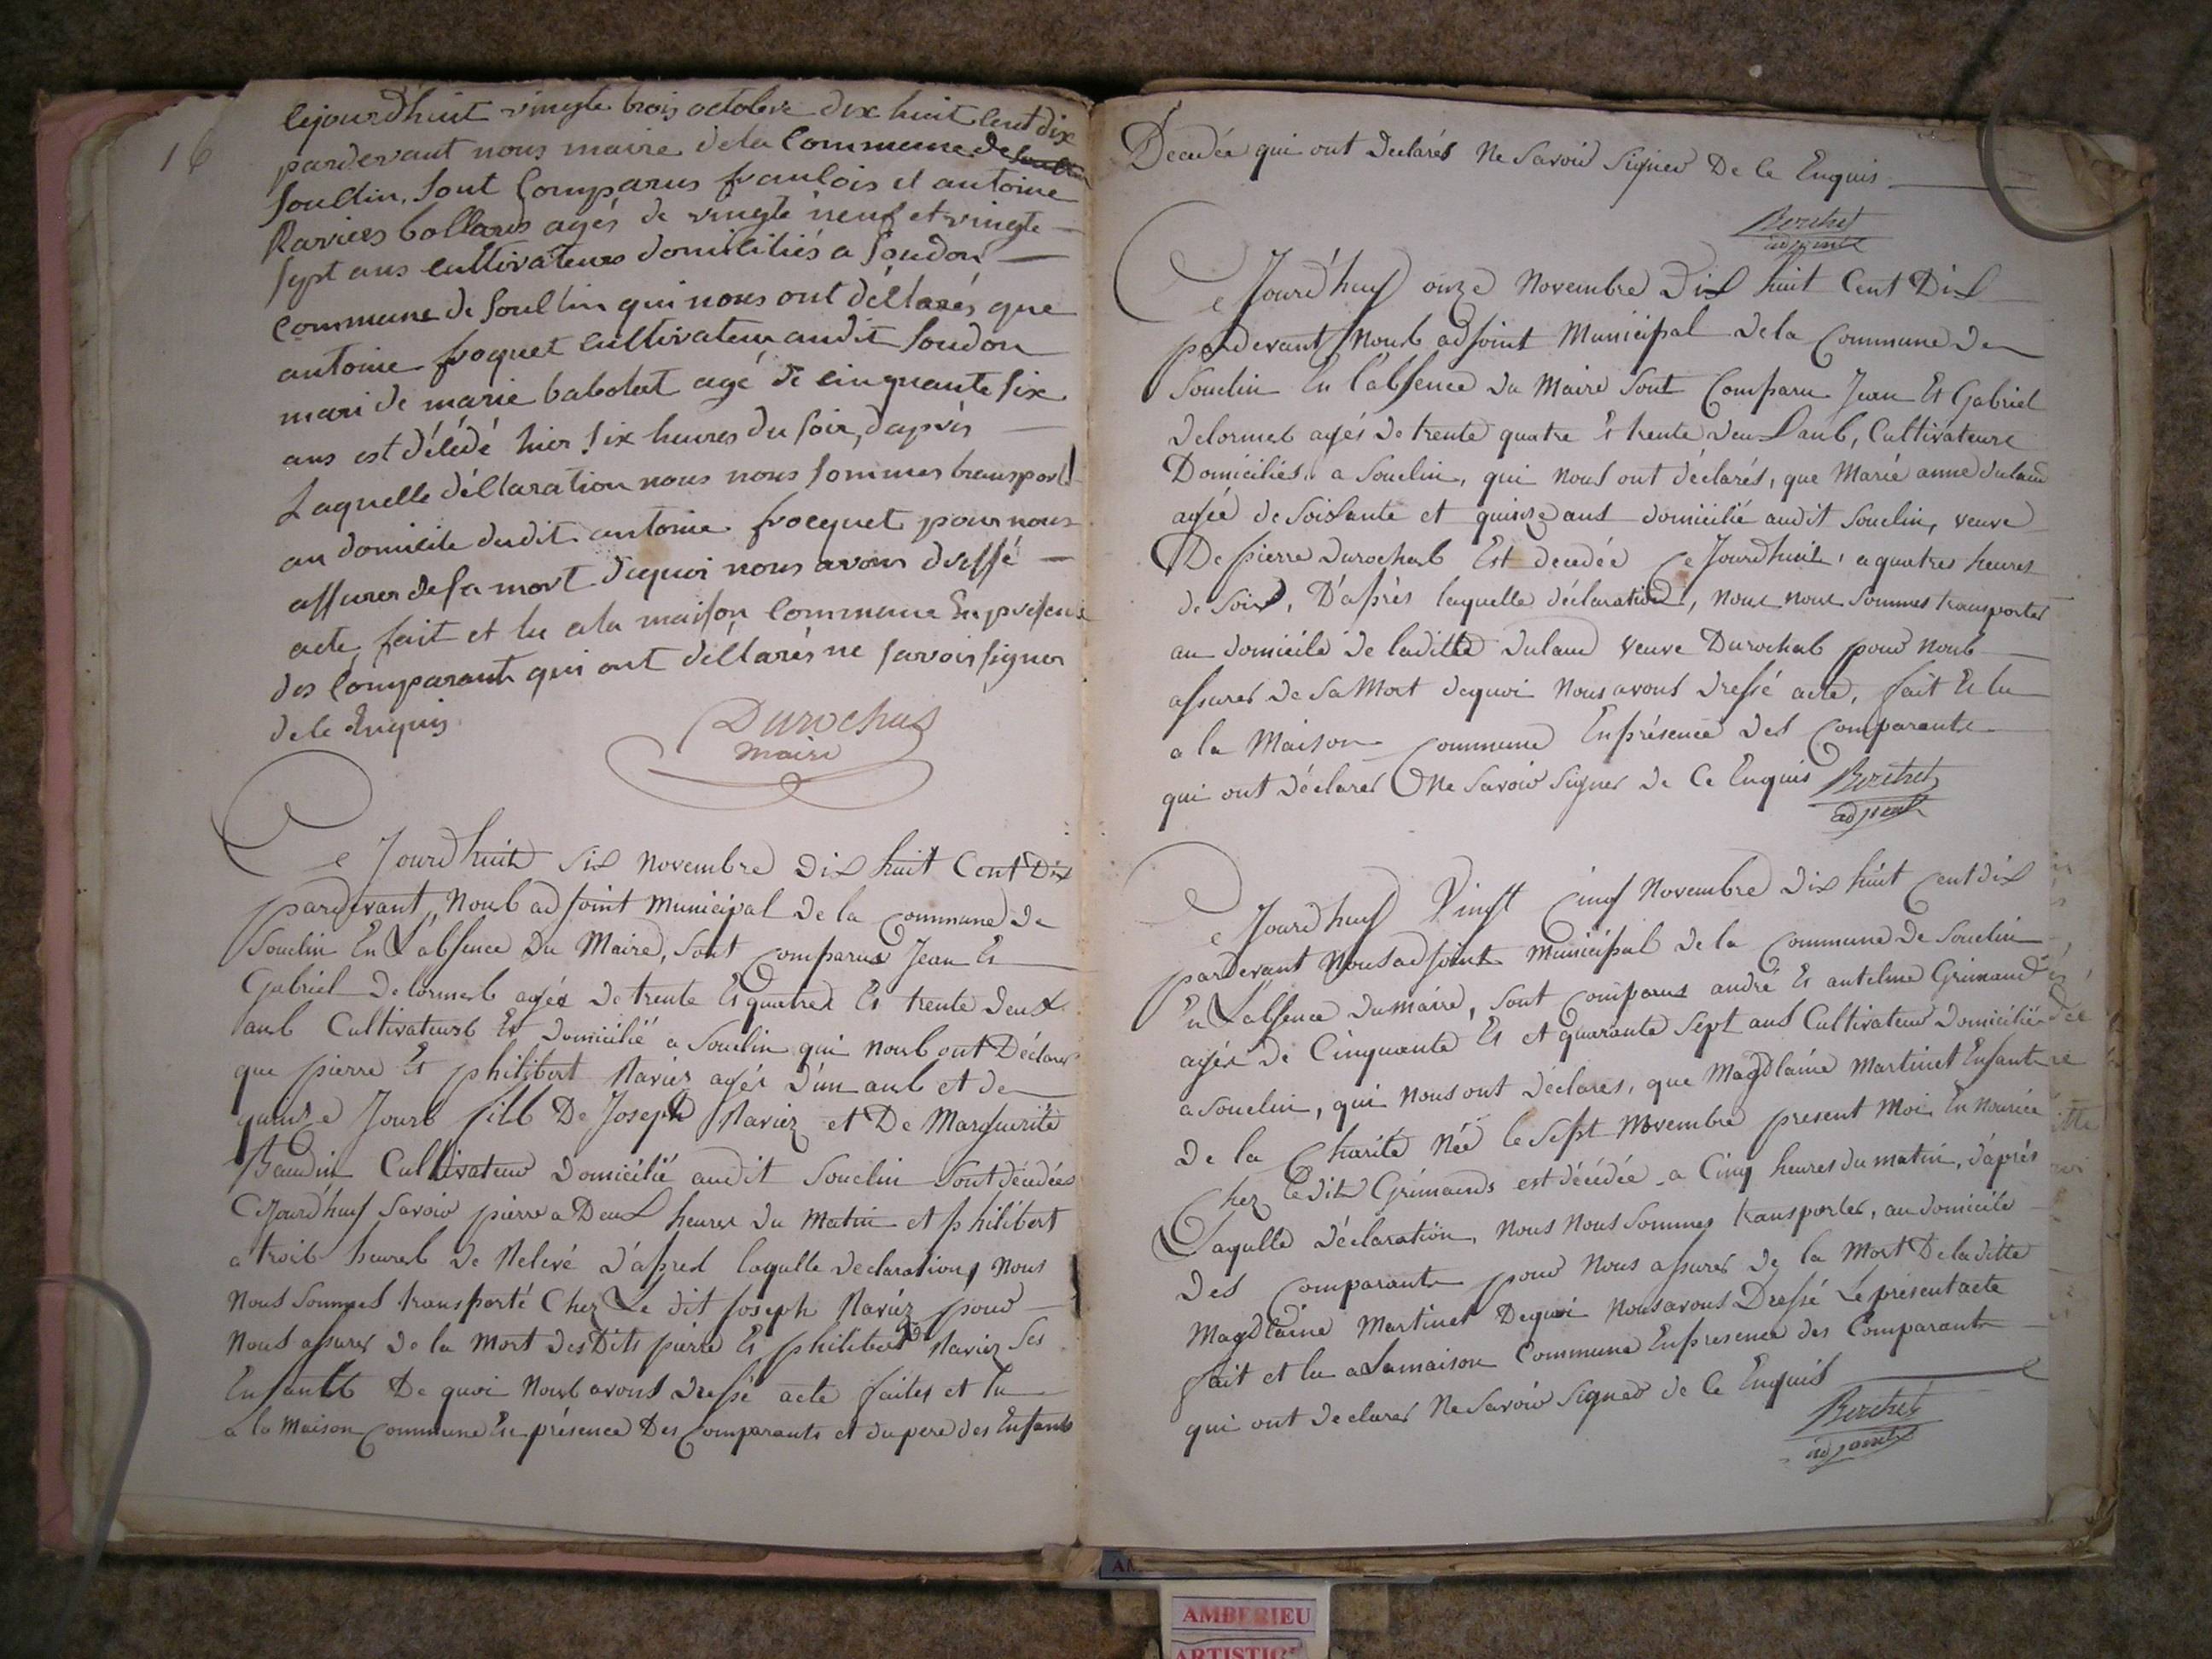 16
Cejourdhuit vingte trois octobre dix huit cent dix
pardevant nous maire dela Commune de
souclin, sont Comparus francois et antoine
Raviers bollards agés de vingte neuf et vingte
sept ans cultivateurs domiciliés a soudon
commune de souclin qui nous ont déclarés que
antoine froquet cultivateur audit soudon
mari de marie babolat agé de cinquante six
ans est décédé hier six heures du soir, dapvès
Laquelle déclaration nous nous sommes transporté
au domicile dudit antoine frocquet pour nous
assurer de sa mort dequoi nous avons dressé
acte, fait et lu ala maison commune En présence
des Comparants qui ont déclarés ne savoir signer
de ce Enquis
Durochas
maire
Ce Jourdhuit six novembre Dix huit Cent Dix
pardevant, Nous adjoint municipal De la commune De
Souclin En L'absence Du Maire, sont comparus Jean Et
Gabriel Delormes agés De trente Et quatres Et trente Deux
ans Cultivateurs Et Domicilié a Souclin qui nous ont Déclarer
que pierre Et philibert Ravier agés D'un ans et de
quinze Jours fils De Joseph Ravier et De Marguerite
Baudin Cultivateur Domicilié audit Souclin Sont décédées
Cejourd'huy Savoir pierre a Deux heures du matin et philibert
a trois heures De Relevé D'apres laqulle Declaration, Nous
Nous Sommes transporté Chez Le dit Joseph Ravier pour
Nous assurer De la Mort Des Dits pierre Et philibert Ravier Ses
Enfants De quoi Nous avons Dressé acte faites et lu
a la Maison Commune En présence Des Comparants et du pere des Enfants
Decedée qui ont Declarés Ne Savoir Signer De Ce Enquis
Berthet
adjoint
Ce Jourd'huy onze Novembre Dix huit Cent Dix
pardevant Nous adjoint Municipal Dela Commune De
Souclin En l'absence Du Maire Sont Comparu Jean Et Gabriel
Delormes agés De trente quatre Et trente Deux ans, Cultivateurs
Domiciliés a Souclin, qui Nous ont déclarés, que Marie anne
agée de Soixante et quinze ans domicilié audit Souclin, veuve
De pierre Durochas Est decedée Ce Jourdhuit, a quatres heures
de Soir, D'après laquelle déclaration, nous nous Sommes transporter
au domicile De laditte veuve Durochas pour Nous
assurer De Sa Mort dequoi Nous avons Dressé acte, fait Et lu
a la Maison commune En présence Des Comparants
qui ont Déclarer Ne Savoir Signer de Ce Enquis Berthet
adjoint
Ce Jourdhuy Vingt Cinq Novembre Dix huit Cent dix
pardevant Nous adjoint Municipal De la Commune De Souclin
En L'absence Du maire, Sont Comparus andré Et antelme Grimaud
agés De Cinquante Et et quarante Sept ans Cultivateur Domicilié
a Souclin, qui Nous ont déclarés, que Magdlaine Martinet Enfant
De la Charité Née le Sept Novembre present Moi En Nourice
Chez Ledit Grimaud est décédée a Cinq heures du matin, d'après
Laqulle Déclaration, Nous Nous Sommes transporter, au domicile
Des Comparants pour Nous assurer De la Mort De laditte
Magdlaine Martinet Dequoi Nous avons Dressé Le présent acte
fait et lu a La maison Commune En presence des Comparants
qui ont declarer Ne Savoir Signer de Ce Enquis
Berthet
adjoint
AMBERIEU